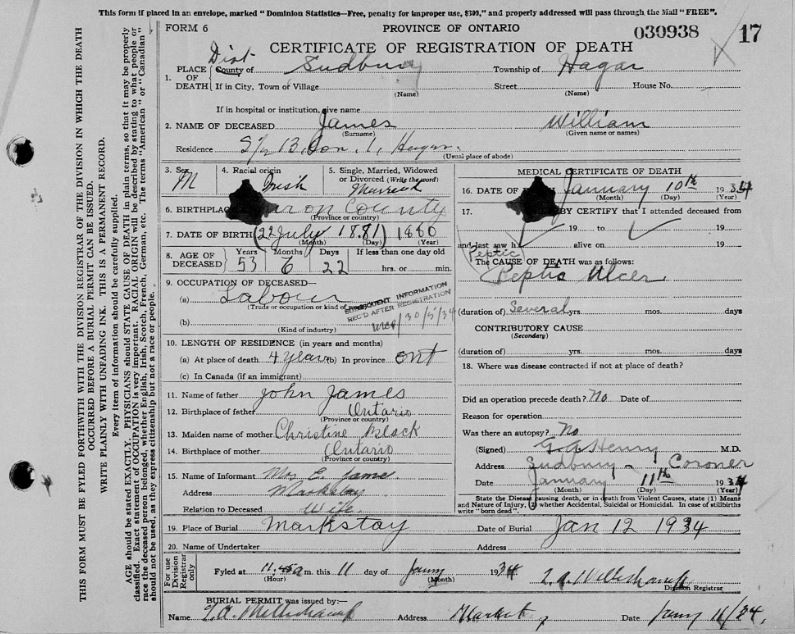 This form if placed in an envelope, marked "Dominion Statistics—Free, penalty for improper use, $300," and properly addressed will pass through the Mail "FREE".
FORM 6 PROVINCE OF ONTARIO 030938 17
CERTIFICATE OF REGISTRATION OF DEATH
1. PLACE OF DEATH Dist County of Sudbury Township of Hagar
(Name) (Name)
If in City, Town or Village Street House No.
If in hospital or institution, give name
2. NAME OF DECEASED James William
(Surname) (Given name or names)
Residence 13, Con. 1, Hagar.
(Usual place of abode)
3. Sex M
4. Racial origin Irish
5. Single, Married, Widowed or Divorced (Write the word) Married
6. BIRTHPLACE County
(Province or country)
7. DATE OF BIRTH (22 July 1881) 1880
(Month) (Day) (Year)
8. AGE OF DECEASED Years 53 Months 6 Days 22 If less than one day old hrs. or min.
9. OCCUPATION OF DECEASED—
(a) Labour
(Trade or occupation or kind of
SUBSEQUENT INFORMATION
REC'D AFTER REGISTRATION
30/5/34
(b)
(Kind of industry)
10. LENGTH OF RESIDENCE (in years and months)
(a) At place of death 4 years (b) In province Ont
(c) In Canada (if an immigrant)
11. Name of father John James
12. Birthplace of father Ontario
(Province or country)
13. Maiden name of mother Christine Black
14. Birthplace of mother Ontario
(Province or country)
15. Name of Informant Mrs E. James
Address Markstay
Relation to Deceased Wife
MEDICAL CERTIFICATE OF DEATH
16. DATE OF January 10th 1934
(Month) (Day) (Year)
17. BY CERTIFY that I attended deceased from
19 to 19
and last saw h alive on 19
Peptic
The CAUSE OF DEATH was as follows:
Peptic Ulcer
(duration of) Several yrs. mos. days
CONTRIBUTORY CAUSE
(Secondary)
(duration of) yrs. mos. days
18. Where was disease contracted if not at place of death?
Did an operation precede death? No Date of
Reason for operation
Was there an autopsy? No
(Signed) Henry M.D.
Address Sudbury - Coroner
Date January 11th 1934
(Month) (Day) (Year)
State the Disease causing death, or in death from Violent Causes, state (1) Means and Nature of Injury, (2) whether Accidental, Suicidal or Homicidal. In case of stillbirths write "born dead".
19. Place of Burial Markstay Date of Burial Jan 12 1934
20. Name of Undertaker Address
For use Division Registrar only
Fyled at 11 a m. this 11 day of 1934
(Hour) (Month) Division Registrar
BURIAL PERMIT was issued by—
Name Address Date
THIS FORM MUST BE FYLED FORTHWITH WITH THE DIVISION REGISTRAR OF THE DIVISION IN WHICH THE DEATH
OCCURRED BEFORE A BURIAL PERMIT CAN BE ISSUED.
WRITE PLAINLY WITH UNFADING INK. THIS IS A PERMANENT RECORD.
Every item of information should be carefully supplied.
AGE should be stated EXACTLY. PHYSICIANS should STATE CAUSE OF DEATH in plain terms, so that it may be properly
classified. Exact statement of OCCUPATION is very important. RACIAL ORIGIN will be described by stating to what people or
race the deceased person belonged, whether English, Irish, Scotch, French, German, etc. The terms "American" or "Canadian"
should not be used, as they express citizenship but not a race or people.